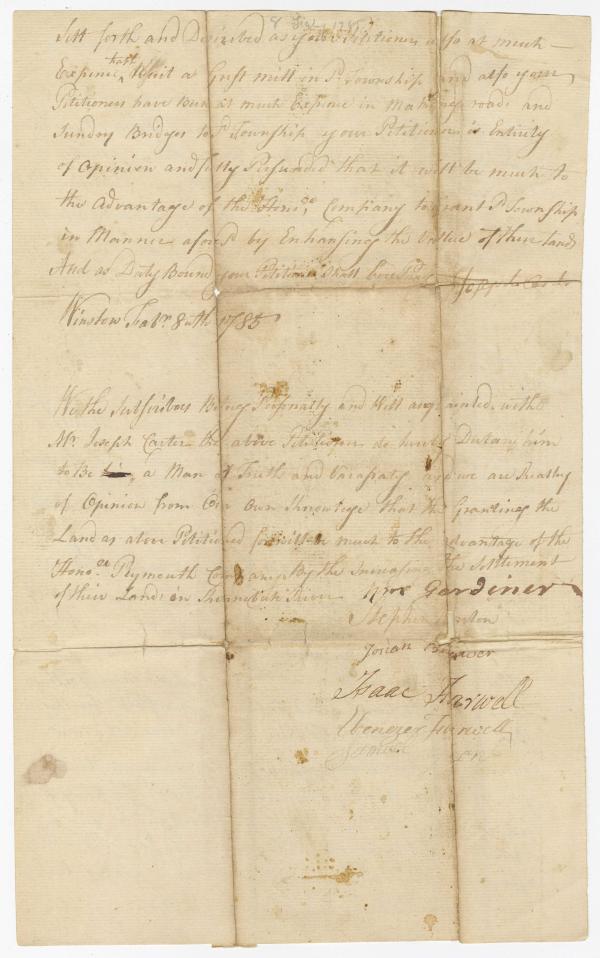 8 Feb. 1785
Sett forth and Discribed as your Petitioner also at much
Expence hath Built a Grist mill in sd. Township and also your
Petitioners have Bin at much Expence in Making roads and
Sundry Bridges to sd. Township your Petitioner is Entirly
of Opinion and fully Persuaded that it will be much to
the advantage of the Honle. Company to grant sd. Township
in Manner aforsd. by Enhansing the Vallue of there Land
And as Duty Bound your Petitioner Shall Ever Pray Joseph Carter
Winslow Febr. 8th 1785
We the Subscribers Being Personally and Well acquainted with
Mr. Joseph Carter the above Petitioner do hereby Declare him
to Be a Man of Truth and Varasaty and we are Really
of Opinion from Our Own Knowledge that the Granting the
Land as above Petitioned for will be much to the advantage of the
Honole. Plymouth Company By the Increasing the Settlement
of their Lands on Kennebeck River Gardiner
Stephen
Josiah Brewer
Isaac Farwell
Ebenezer Farwell